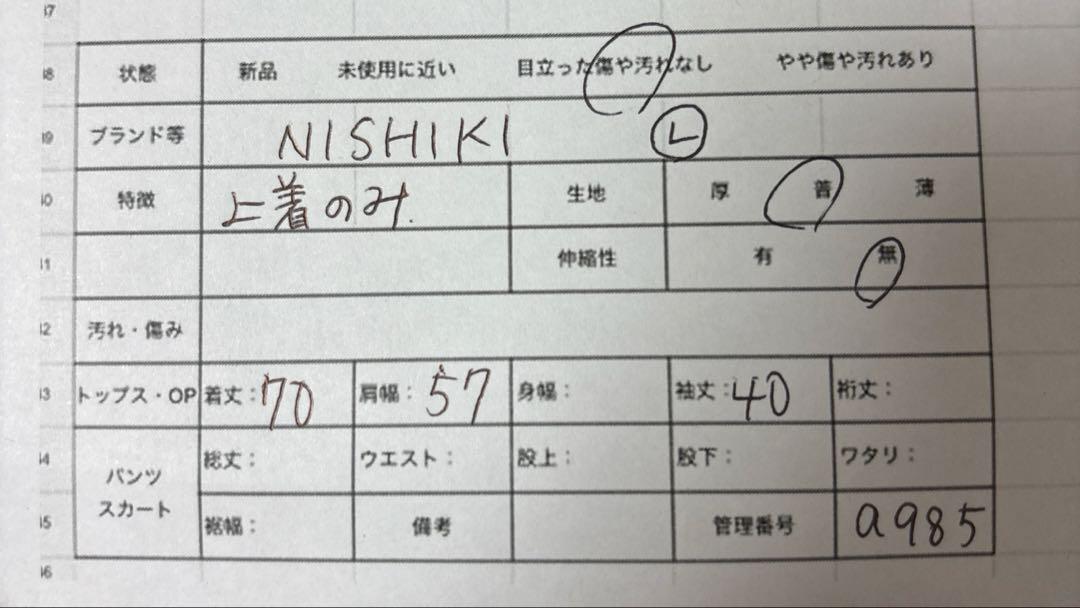 37
38 状態 新品 未使用に近い 目立った傷や汚れなし やや傷や汚れあり
39 ブランド等 NISHIKI L
40 特徴 上着のみ. 生地 厚 普 薄
41 伸縮性 有 無
42 汚れ・傷み
43 トップス・OP 着丈:70 肩幅:57 身幅: 袖丈:40 裄丈:
44 パンツ 総丈: ウエスト: 股上: 股下: ワタリ:
スカート
45 裾幅: 備考 管理番号 a985
46